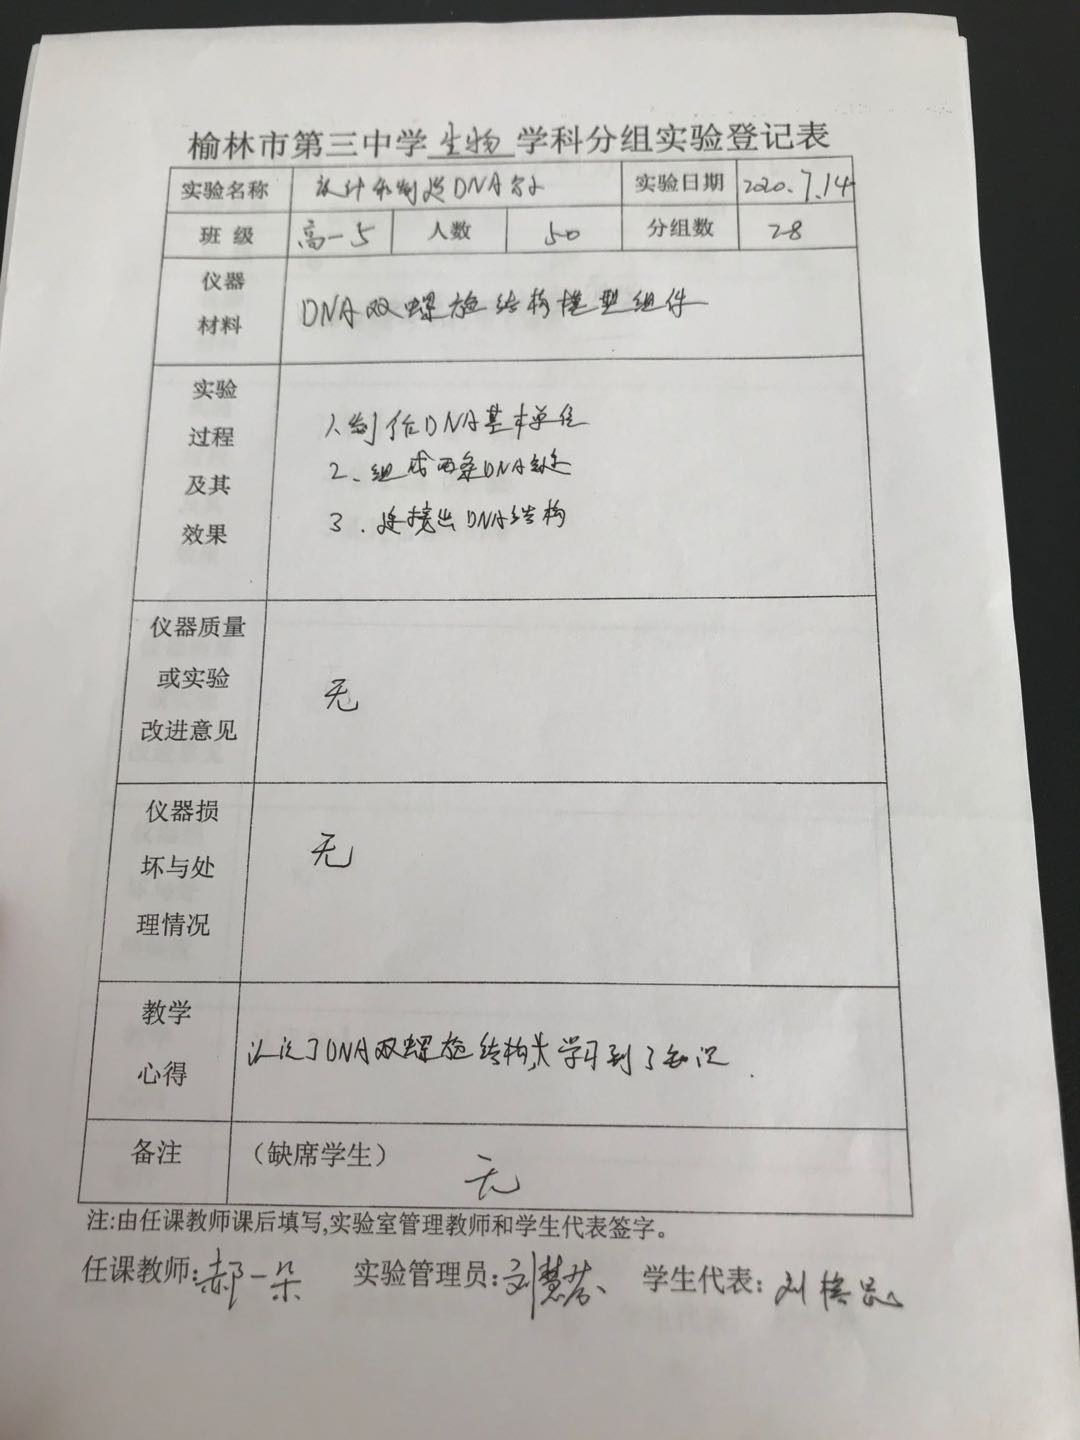 榆林市第三中学生物学科分组实验登记表
实验名称 设计和制造DNA分子 实验日期 2020.7.14
班 级 高一5 人数 50 分组数 28
仪器
材料
DNA双螺旋结构模型组件
实验
过程
及其
效果
1、制作DNA基本单位
2、组成两条DNA链
3、连接出DNA结构
仪器质量
或实验
改进意见
无
仪器损
坏与处
理情况
无
教学
心得
认识了DNA双螺旋结构,学习到了知识.
备注 (缺席学生)
无
注:由任课教师课后填写,实验室管理教师和学生代表签字。
任课教师:郝一朵 实验管理员:刘慧芳 学生代表:刘